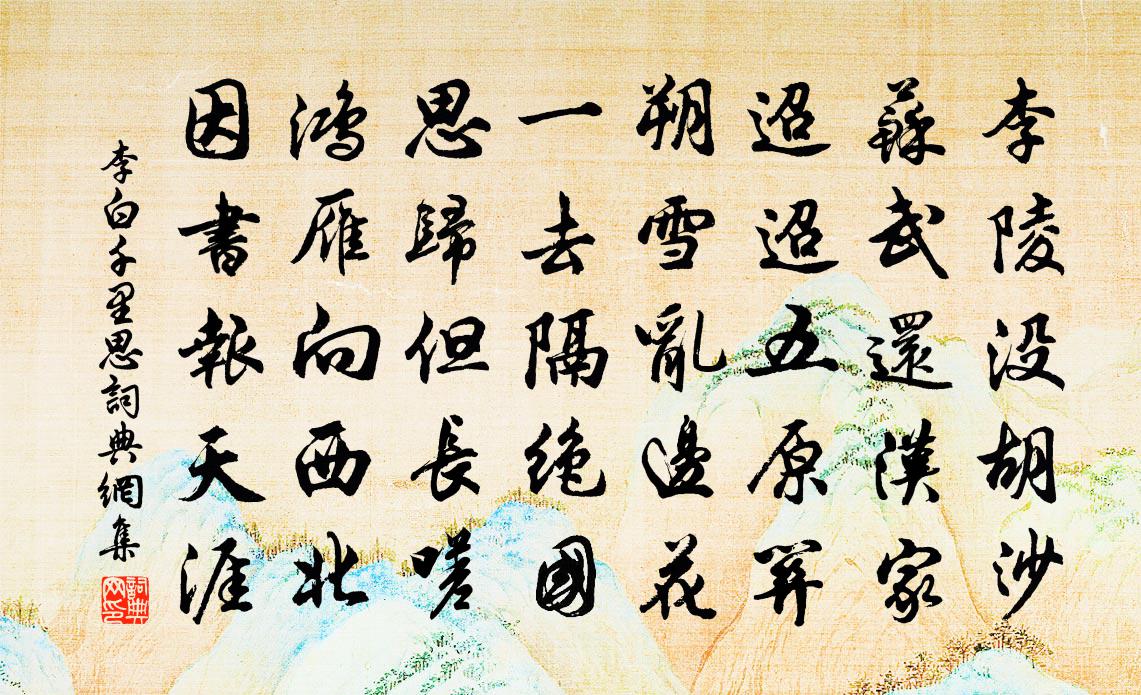 李陵没胡沙
蘇武還漢家
迢迢五原關
朔雪亂邊花
一去隔絶國
思歸但長嗟
鴻雁向西北
因書報天涯
李白千里思詞典網集
詞典网印